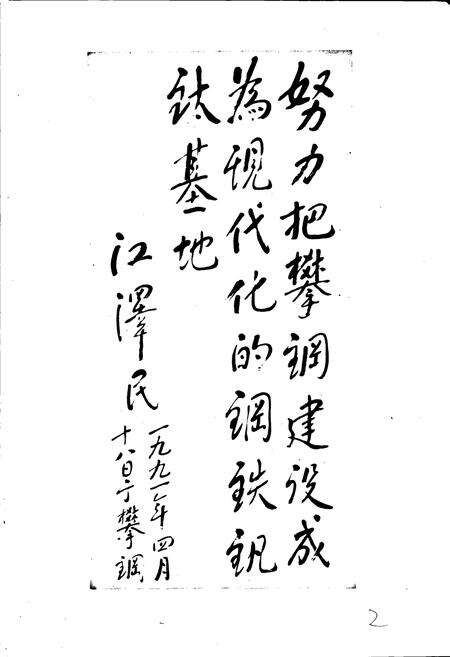 努力把攀钢建设成
為现代化的钢铁钒
钛基地
江澤民
一九九一年四月
十八日于攀钢
2